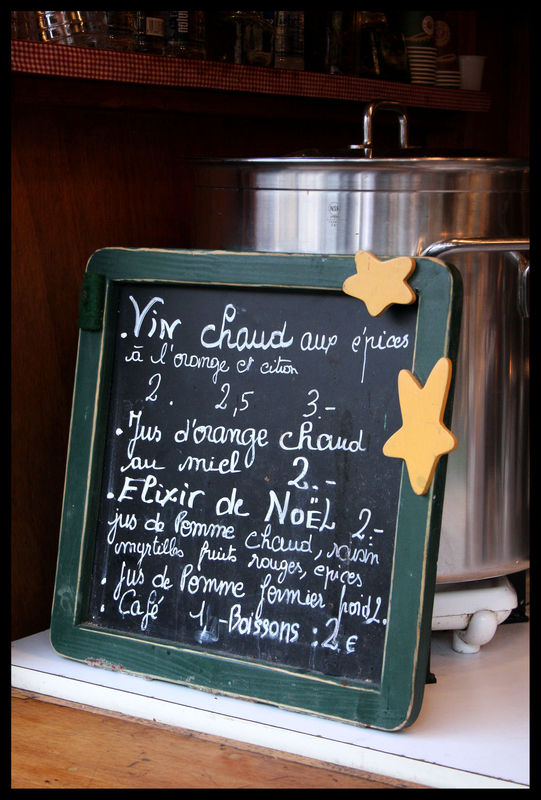 . Vin chaud aux épices
à l'orange et citron
2. 2,5 3.-
. Jus d'orange chaud
au miel 2.-
. Elixir de NOËL 2.-
jus de Pomme chaud, raisin
myrtilles fruits rouges, épices
. Jus de Pomme fermier froid 2.
. Café 1,- Boissons : 2 €